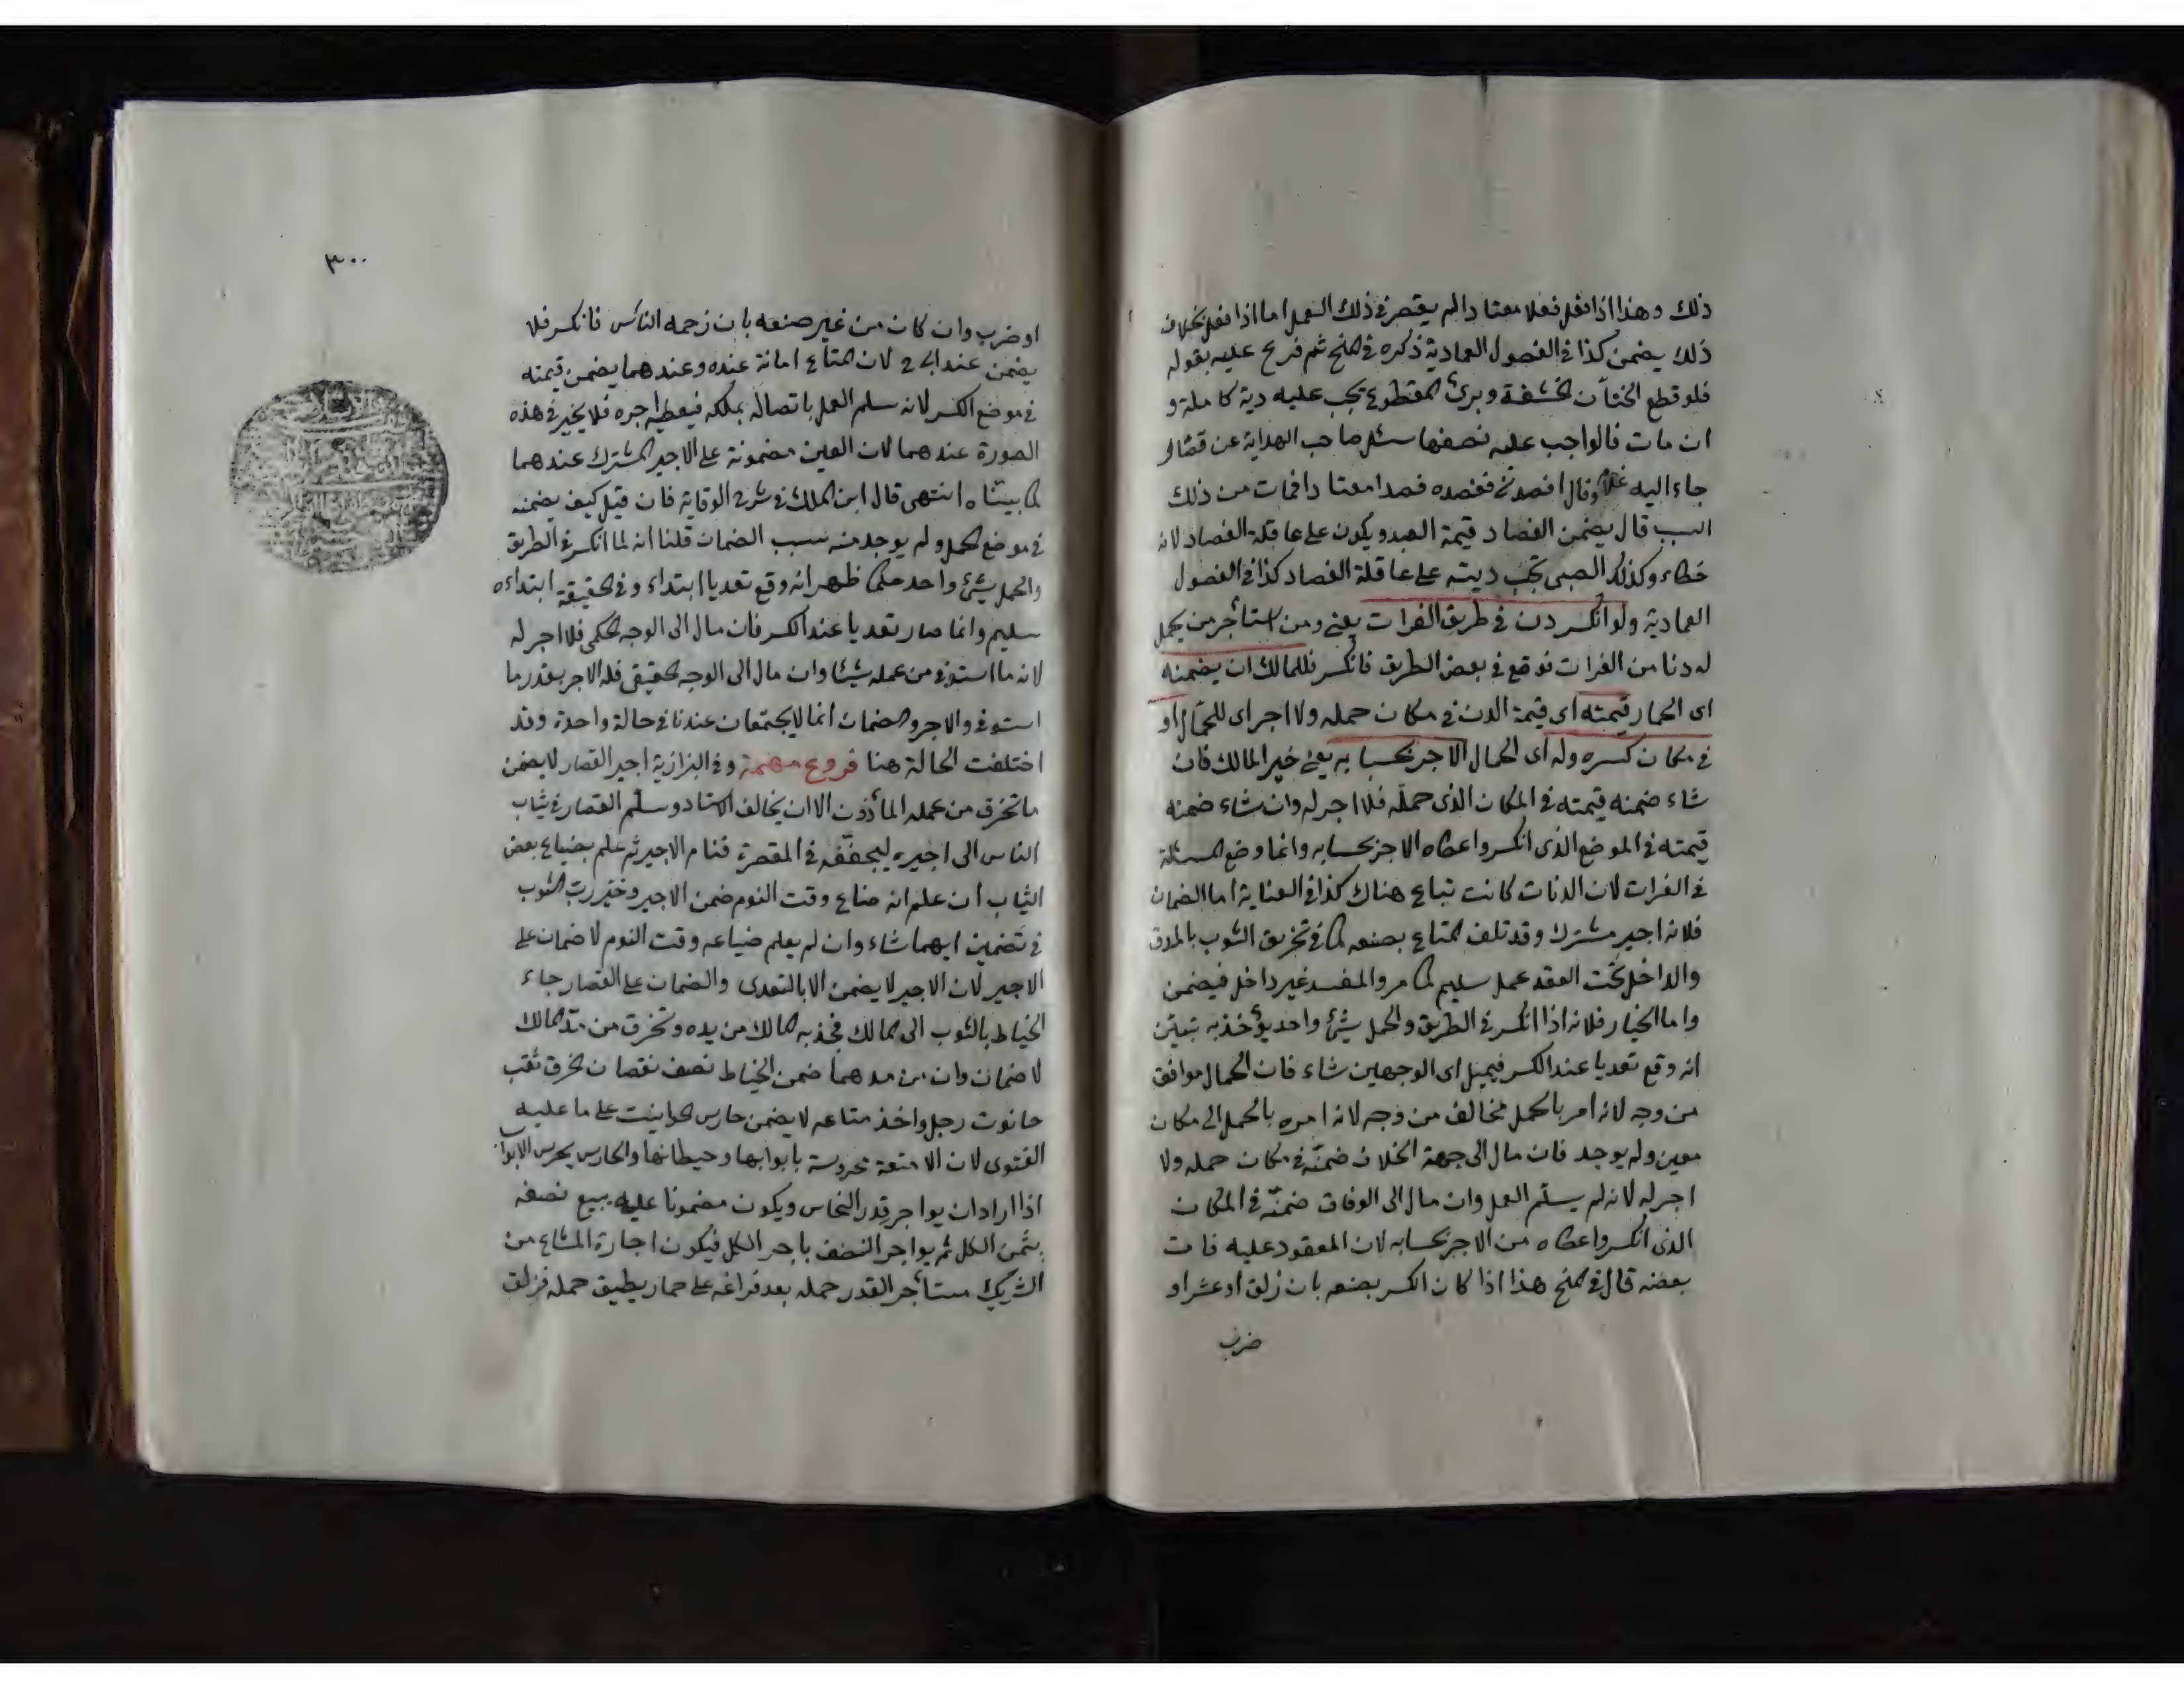 ذلك وهذا اذا فعل فعلا معتادا لم يقصر في ذلك العمل اما اذا فعل بخلاف
ذلك يضمن كذا في الفصول العمادية ذكره في المنح ثم فرع عليه بقوله
فلو قطع الختان الحشفة وبرئ المقطوع يجب عليه دية كاملة و
ان مات فالواجب عليه نصفها سئل صاحب الهداية عن فصاد
جاء اليه غلام وقال افصدني ففصده فصدا معتادا فمات من ذلك
السبب قال يضمن الفصاد قيمة العبد ويكون على عاقلة الفصاد لانه
خطاء وكذلك الصبي تجب ديته على عاقلة الفصاد كذا في الفصول
العمادية ولو انكسر دن في طريق الفرات يعني ومن استأجر من يحمل
له دنا من الفرات فوقع في بعض الطريق فانكسر فللمالك ان يضمنه
اى الحمار قيمته اى قيمة الدن في مكان حمله ولا اجر اى للحمّال او
في مكان كسره وله اى الحمال الاجر بحسابه يعني خير المالك فان
شاء ضمنه قيمته في المكان الذى حمله فلا اجر له وان شاء ضمنه
قيمته في الموضع الذى انكسر واعطاه الاجر بحسابه وانما وضع المسئلة
في الفرات لان الدنان كانت تباع هناك كذا في العناية اما الضمان
فلانه اجير مشترك وقد تلف المتاع بصنعه كما في تخريق الثوب بالمدق
والداخل تحت العقد عمل سليم كما مر والمفسد غير داخل فيضمن
واما الخيار فلانه اذا انكسر في الطريق والحمل شئ واحد يؤخذ به تبين
انه وقع تعديا عند الكسر فيميل اى الوجهين شاء فان الحمال موافق
من وجه لانه امر بالحمل مخالف من وجه لانه امره بالحمل الى مكان
معين ولم يوجد فان مال الى جهة الخلاف ضمنه في مكان حمله ولا
اجر له لانه لم يسلّم العمل وان مال الى الوفاق ضمنه في المكان
الذى انكسر واعطاه من الاجر بحسابه لان المعقود عليه فات
بعضه قال في المنح هذا اذا كان الكسر بصنعه بان زلق او عشر او
ضرب
٣٠٠
او ضرب وان كان من غير صنعه بان زحمه الناس فانكسر فلا
يضمن عند ابى ح لان المتاع امانة عنده وعندهما يضمن قيمته
في موضع الكسر لانه سلم العمل باتصاله بملكه فيعطيه اجره فلا يخير في هذه
الصورة عندهما لان العين مضمونة على الاجير المشترك عندهما
كما بيناه انتهى قال ابن الملك في شرح الوقاية فان قيل كيف يضمنه
في موضع الحمل ولم يوجد منه سبب الضمان قلنا انه لما انكسر في الطريق
والحمل شئ واحد حكما ظهر انه وقع تعديا ابتداء وفي الحقيقة ابتداءه
سليم وانما صار تعديا عند الكسر فان مال الى الوجه الحكمى فلا اجر له
لانه ما استوفى من عمله شيئا وان مال الى الوجه الحقيقى فله الاجر بقدر ما
استوفى والاجر والضمان انما لا يجتمعان عندنا في حالة واحدة وقد
اختلفت الحالة هنا فروع مهمة وفي البزازية اجير القصار لا يضمن
ما تخرق من عمله المأذون الا ان يخالف الاستاد وسلّم القصار في ثياب
الناس الى اجيره ليجفّفه في المقصرة فنام الاجير ثم علم بضياع بعض
الثياب ان علم انه ضاع وقت النوم ضمن الاجير وخيّر ربّ الثوب
في تضمين ايهما شاء وان لم يعلم ضياعه وقت النوم لا ضمان على
الاجير لان الاجير لا يضمن الا بالتعدى والضمان على القصار جاء
الخياط بالثوب الى المالك فجذبه المالك من يده وتخرق من مدّ المالك
لا ضمان وان من مدهما ضمن الخياط نصف نقصان الخرق نقب
حانوت رجل واخذ متاعه لا يضمن حارس الحوانيت على ما عليه
الفتوى لان الامتعة محروسة بابوابها وحيطانها والحارس يحرس الابواب
اذا اراد ان يواجر قدر النحاس ويكون مضمونا عليه يبيع نصفه
بثمن الكل ثم يواجر النصف باجر الكل فيكون اجارة المشاع من
الشريك مستأجر القدر حمله بعد فراغه على حمار يطيق حمله فزلق